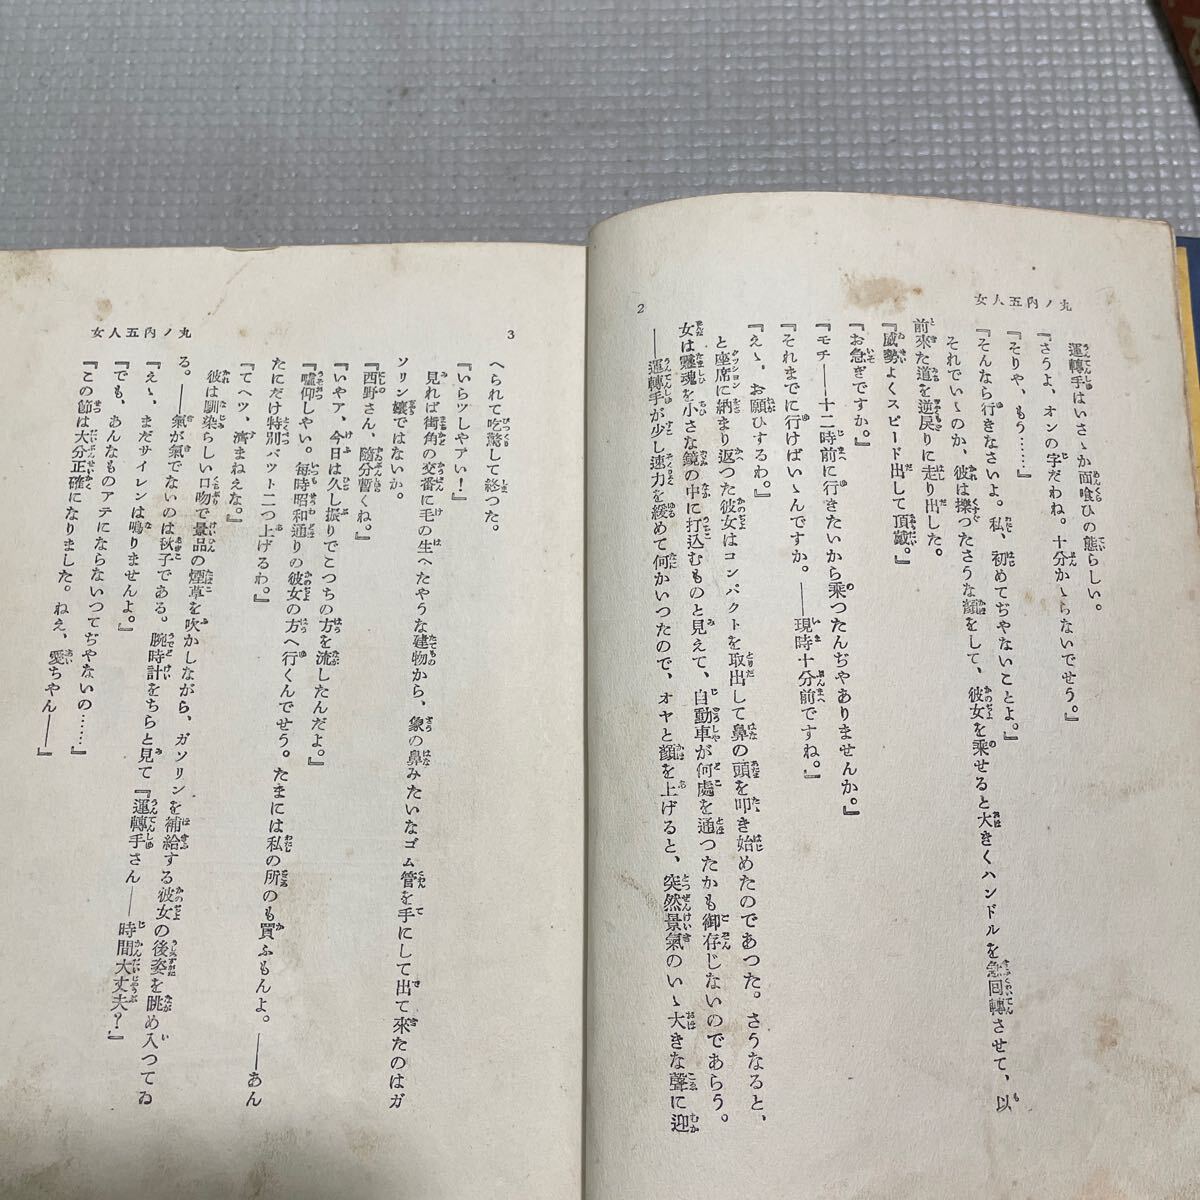 丸ノ内五人女
2
運轉手はいさゝか面喰ひの態らしい。
『さうよ、オンの字だわね。十分かゝらないでせう。』
『そりや、もう……』
『そんなら行きなさいよ。私、初めてぢやないことよ。』
それでいゝのか、彼は擽つたさうな顔をして、彼女を乘せると大きくハンドルを急回轉させて、以
前來た道を逆戻りに走り出した。
『威勢よくスピード出して頂戴。』
『お急ぎですか。』
『モチ――十二時前に行きたいから乘つたんぢやありませんか。』
『それまでに行けばいゝんですか。――現時十分前ですね。』
『えゝ、お願ひするわ。』
と座席に納まり返つた彼女はコンパクトを取出して鼻の頭を叩き始めたのであつた。さうなると、
女は靈魂を小さな鏡の中に打込むものと見えて、自動車が何處を通つたかも御存じないのであらう。
――運轉手が少し速力を緩めて何かいつたので、オヤと顔を上げると、突然景氣のいゝ大きな聲に迎
丸ノ内五人女
3
へられて吃驚して終つた。
『いらツしやアい！』
見れば街角の交番に毛の生へたやうな建物から、象の鼻みたいなゴム管を手にして出て來たのはガ
ソリン孃ではないか。
『西野さん、隨分暫くね。』
『いやア、今日は久し振りでこつちの方を流したんだよ。』
『嘘仰しやい。毎時昭和通りの彼女の方へ行くんでせう。たまには私の所のも買ふもんよ。――あん
たにだけ特別バット二つ上げるわ。』
『てヘツ、濟まねえな。』
彼は馴染らしい口吻で景品の煙草を吹かしながら、ガソリンを補給する彼女の後姿を眺め入つてゐ
る。――氣が氣でないのは秋子である。腕時計をちらと見て『運轉手さん――時間大丈夫？』
『えゝ、まだサイレンは鳴りませんよ。』
『でも、あんなものアテにならないつてぢやないの……』
『この節は大分正確になりました。ねえ、愛ちやん――』